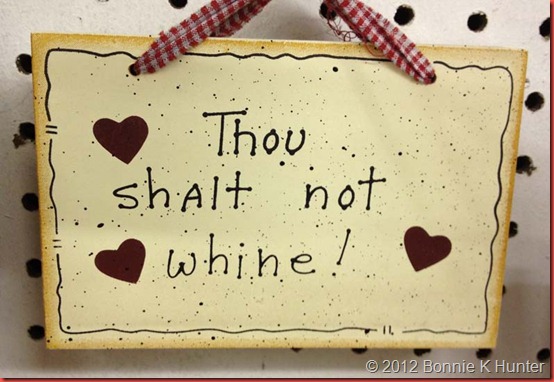 Thou
shalt not
whine!
© 2012 Bonnie K Hunter